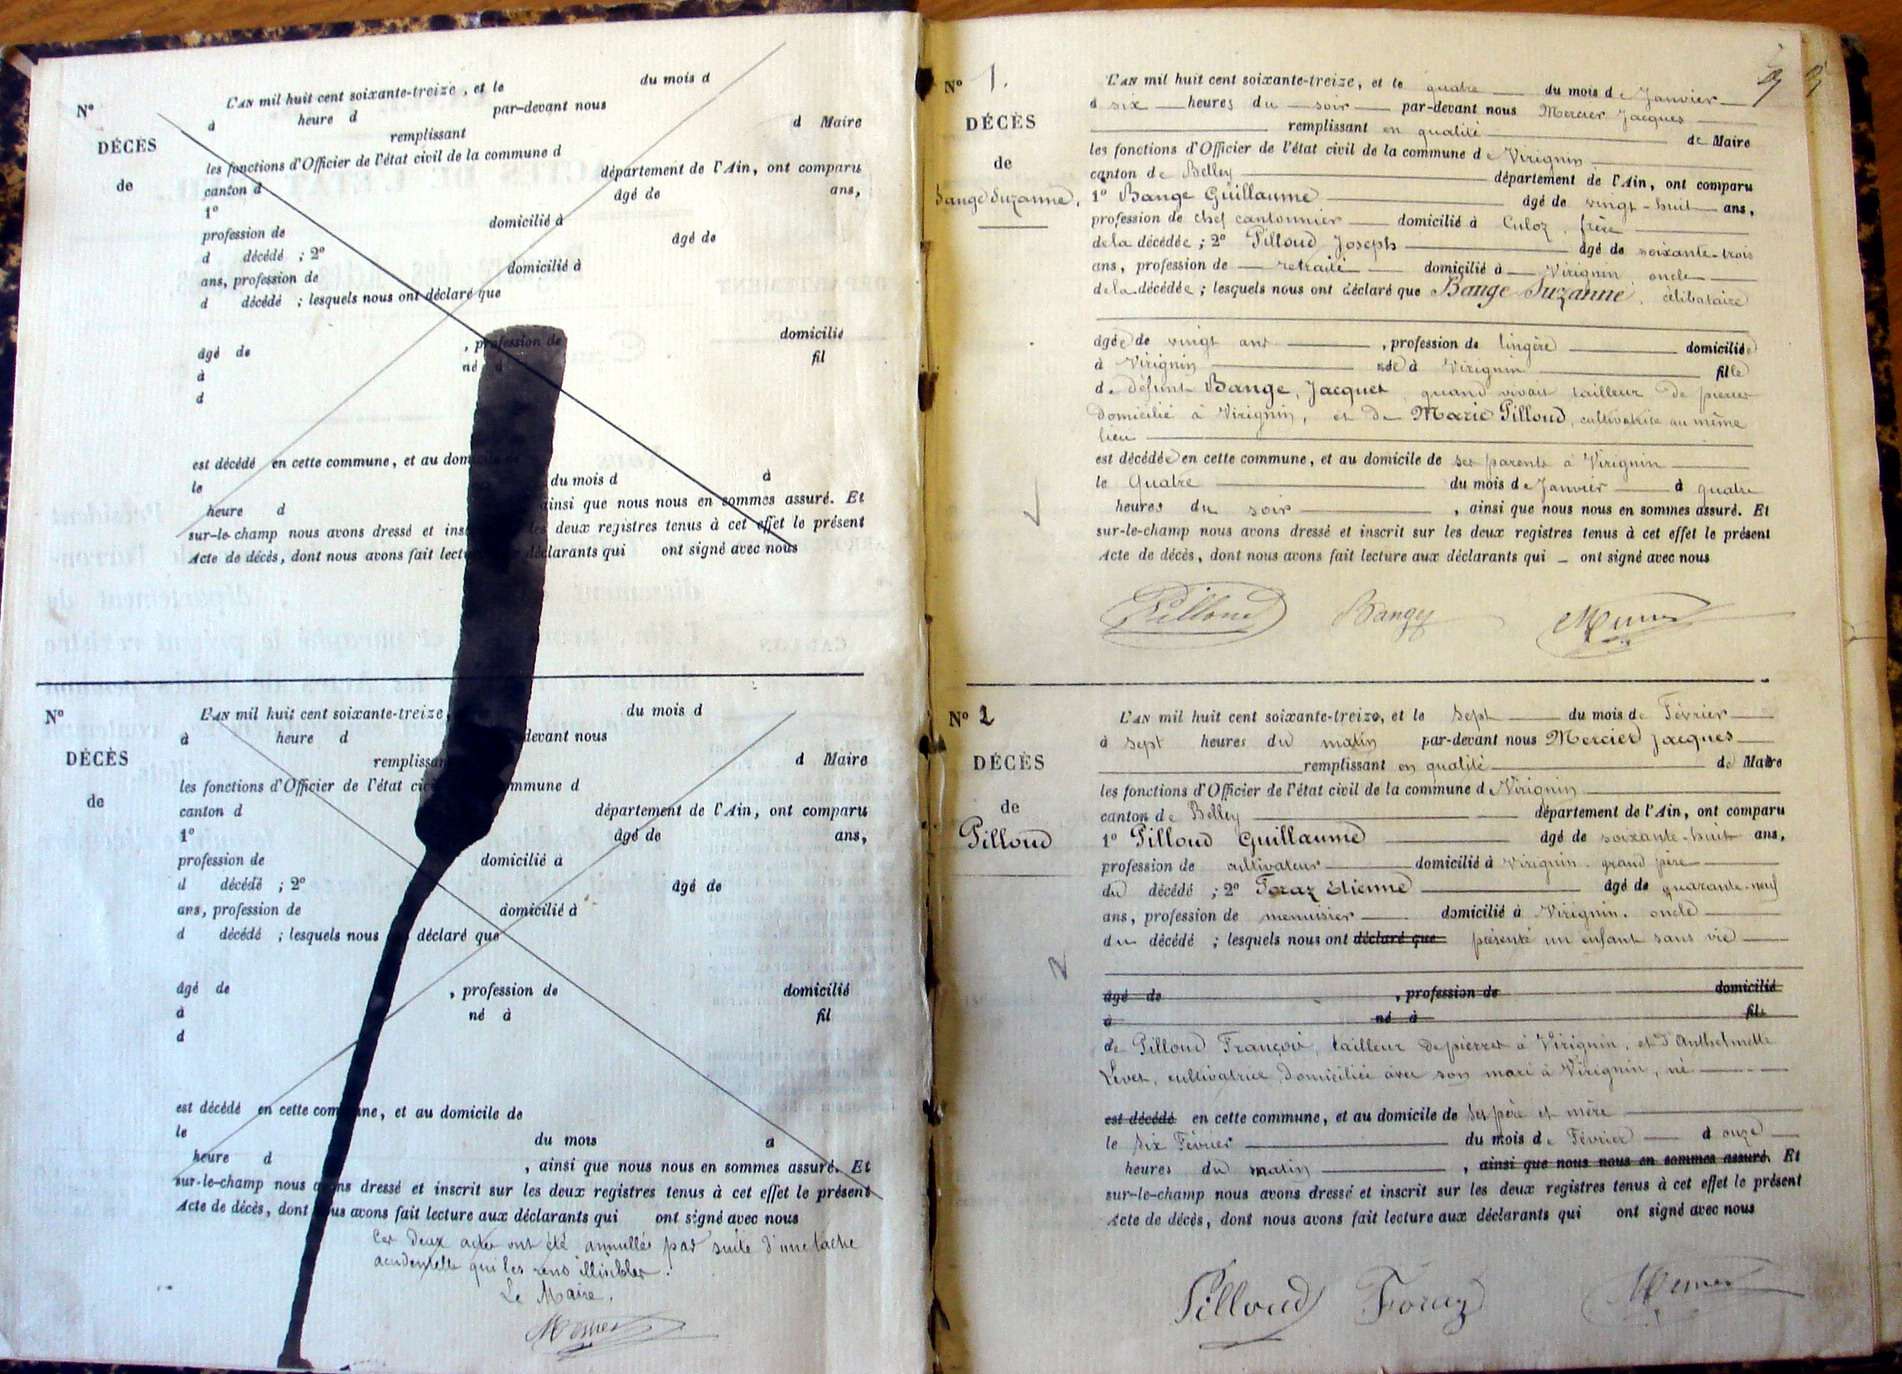 N°
DÉCÈS
de
L'AN mil huit cent soixante-treize, et le du mois d
à heure d par-devant nous
remplissant d Maire
les fonctions d'Officier de l'état civil de la commune d
canton d département de l'Ain, ont comparu
1° âgé de ans,
profession de domicilié à
d décédé ; 2° âgé de
ans, profession de domicilié à
d décédé ; lesquels nous ont déclaré que
âgé de , profession de domicilié
à né à fil
d
est décédé en cette commune, et au domicile de
le du mois d à
heure d ainsi que nous nous en sommes assuré. Et
sur-le-champ nous avons dressé et inscrit les deux registres tenus à cet effet le présent
Acte de décès, dont nous avons fait lecture déclarants qui ont signé avec nous
N°
DÉCÈS
de
L'AN mil huit cent soixante-treize, du mois d
à heure d devant nous
remplissant d Maire
les fonctions d'Officier de l'état civil commune d
canton d département de l'Ain, ont comparu
1° âgé de ans,
profession de domicilié à
d décédé ; 2° âgé de
ans, profession de domicilié à
d décédé ; lesquels nous déclaré que
âgé de , profession de domicilié
à né à fil
d
est décédé en cette commune, et au domicile de
le du mois à
heure d , ainsi que nous nous en sommes assuré. Et
sur-le-champ nous avons dressé et inscrit sur les deux registres tenus à cet effet le présent
Acte de décès, dont nous avons fait lecture aux déclarants qui ont signé avec nous
Ces deux actes ont été annullés par suite d'une tache
accidentelle qui les rend illisibles.
Le Maire,
N° 1.
DÉCÈS
de
Bange Suzanne,
L'AN mil huit cent soixante-treize, et le quatre du mois de Janvier
à six heures du soir par-devant nous Mercier Jacques
remplissant en qualité de Maire
les fonctions d'Officier de l'état civil de la commune de Virignin
canton de Belley département de l'Ain, ont comparu
1° Bange Guillaume âgé de vingt-huit ans,
profession de chef cantonnier domicilié à Culoz, frère
de la décédée ; 2° Pilloud Joseph âgé de soixante-trois
ans, profession de retraité domicilié à Virignin oncle
de la décédée ; lesquels nous ont déclaré que Bange Suzanne, célibataire
âgée de vingt ans , profession de lingère domiciliée
à Virignin née à Virignin fille
de défunt Bange, Jacques, quand vivait tailleur de pierres
domicilié à Virignin, et de Marie Pilloud, cultivatrice au même
lieu
est décédée en cette commune, et au domicile de ses parents à Virignin
le Quatre du mois de Janvier à quatre
heures du soir , ainsi que nous nous en sommes assuré. Et
sur-le-champ nous avons dressé et inscrit sur les deux registres tenus à cet effet le présent
Acte de décès, dont nous avons fait lecture aux déclarants qui ont signé avec nous
Pilloud Bange
N° 2
DÉCÈS
de
Pilloud
L'AN mil huit cent soixante-treize, et le sept du mois de Février
à sept heures du matin par-devant nous Mercier Jacques
remplissant en qualité de Maire
les fonctions d'Officier de l'état civil de la commune de Virignin
canton de Belley département de l'Ain, ont comparu
1° Pilloud Guillaume âgé de soixante-huit ans,
profession de cultivateur domicilié à Virignin grand père
du décédé ; 2° Foraz Etienne âgé de quarante-neuf
ans, profession de menuisier domicilié à Virignin. oncle
du décédé ; lesquels nous ont déclaré que présenté un enfant sans vie
âgé de , profession de domicilié
à né à fils
de Pilloud François, tailleur de pierres à Virignin, et d'Anthelmette
Levet, cultivatrice, domiciliée avec son mari à Virignin, né
est décédé en cette commune, et au domicile de ses père et mère
le six Février du mois de Février à onze
heures du matin , ainsi que nous nous en sommes assuré. Et
sur-le-champ nous avons dressé et inscrit sur les deux registres tenus à cet effet le présent
Acte de décès, dont nous avons fait lecture aux déclarants qui ont signé avec nous
Pilloud Foraz